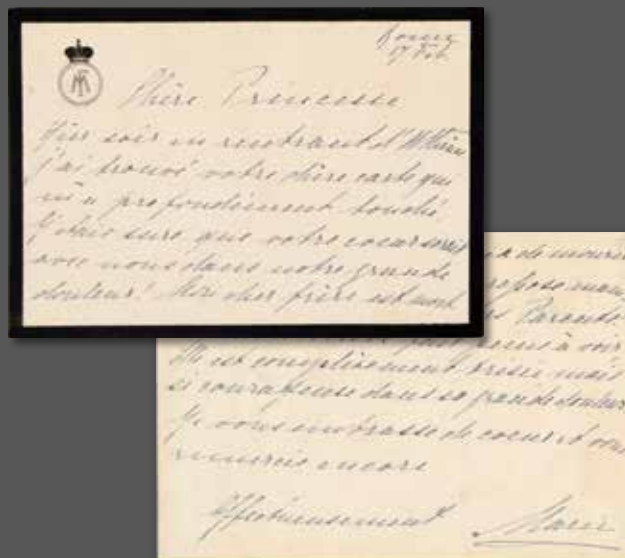 17 Feb
Chère Princesse
Hier soir en rentrant d'
j'ai trouvé votre chère carte qui
m'a profondément touché
J'étais sure que votre coeur serait
avec nous dans notre grande
douleur! Mon cher frère est mort
de mourir
repose
Parents
à voir
Elle est complètement brisée mais
si courageuse dans sa grande douleur
Je vous embrasse de coeur et vous
remercie encore
Affectueusement